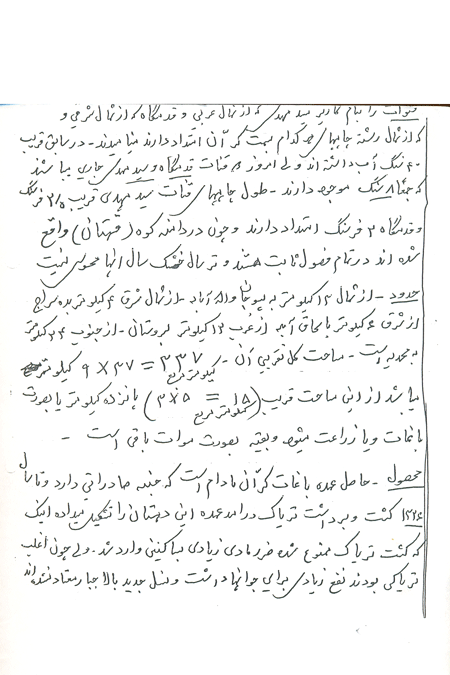 قنوات را بنام کاریز سید مهدی که از شمال غربی و قدمگاه که از شمال شرقی و
که از شمال رشته چاههای هر کدام بسمت کر آن امتداد دارند مینامیدند - در سابق قریب
۴۰ سنگ آب داشته اند ولی امروز قنات قدمگاه و سید مهدی جاری میباشند
که جمعا ۸ سنگ موجود دارند - طول چاههای قنات سید مهدی قریب ۳/۵ فرسنگ
و قدمگاه ۳ فرسنگ امتداد دارند و چون در دامنه کوه (قهستان) واقع
شده اند در تمام فصول ثابت هستند و تر سال خشک سال آنها محسوس نیست
حدود - از شمال ۱۲ کیلومتر به والله آباد - از شمال شرق ۴ کیلومتر بده سراج
از شرق ۶ کیلومتر از غرب ۱۲ کیلومتر - از جنوب ۲۴ کیلومتر
به محمدیه است - مساحت کل تقریبی آن - ۹ × ۳۷ = ۳۳۷ کیلومتر مربع
میباشد از این مساحت قریب (۳×۵ = ۱۵ کیلومتر مربع) پانزده کیلومتر یا بصورت
باغات و یا زراعت میشود و بقیه بصورت موات باقی است -
محصول - حاصل عمده باغات کر آن بادام است که جنبه صادراتی دارد و تا سال
۱۳۳۴ کشت و برداشت تریاک درآمد عمده این دهستان را تشکیل میداده اینک
که کشت تریاک ممنوع شده ضرر مادی زیادی بساکنین وارد شد - ولی چون اغلب
تریاکی بودند نفع زیادی برای جوانها داشت و نسل جدید بالاجبار معتاد نشده اند